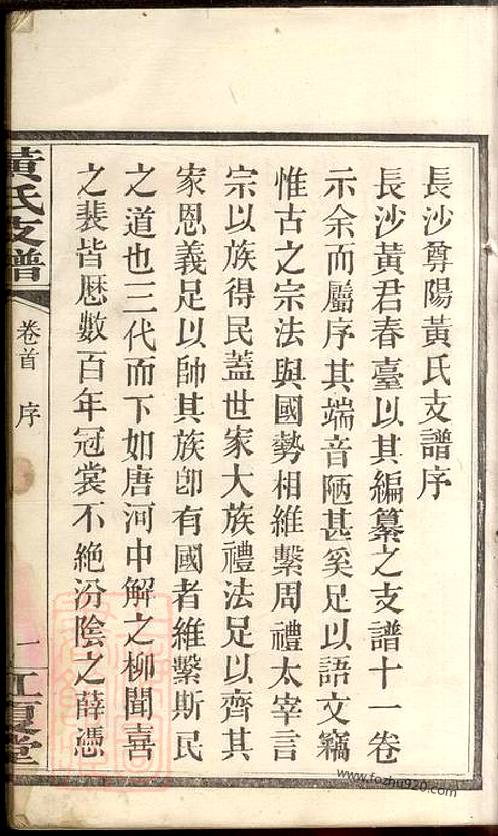 長沙尊陽黃氏支譜序
長沙黃君春臺以其編纂之支譜十一卷
示余而屬序其端音陋甚奚足以語文竊
惟古之宗法與國勢相維繫周禮太宰言
宗以族得民蓋世家大族禮法足以齊其
家恩義足以帥其族卽有國者維繫斯民
之道也三代而下如唐河中解之柳聞喜
之裴皆歷數百年冠裳不絕汾陰之薛憑
黃氏支譜
卷首 序
一
江夏堂
www.fozhu920.com